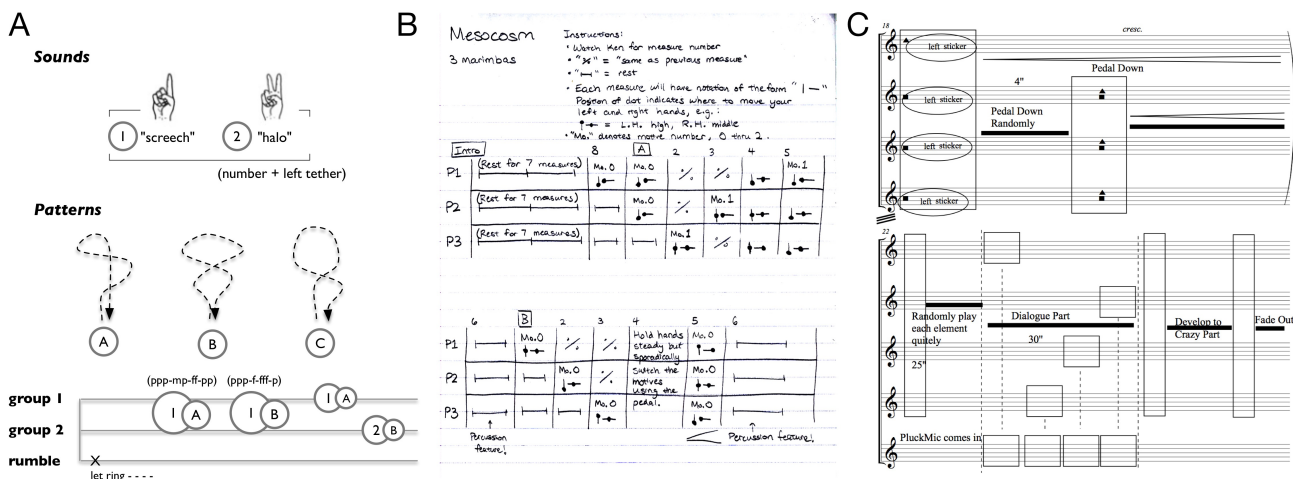 A
Sounds
1 "screech"
2 "halo"
(number + left tether)
Patterns
A
B
C
(ppp-mp-ff-pp)
(ppp-f-fff-p)
group 1
1 A
1 B
1 A
group 2
2 B
rumble
X
let ring - - - -
B
Mesocosm
3 Marimbas
Instructions:
• Watch Ken for measure number
• "٪" = "same as previous measure"
• "|—|" = rest
• Each measure will have notation of the form "|—"
Position of dot indicates where to move your
left and right hands, e.g.:
= L.H. high, R.H. middle
• "Mo." denotes motive number, 0 thru 2.
Intro 8 A 2 3 4 5
P1 (Rest for 7 measures) Mo. 0 Mo. 0 Mo. 1
P2 (Rest for 7 measures) Mo. 0 Mo. 1
P3 (Rest for 7 measures) Mo. 1
6 B 2 3 4 5 6
P1 Mo. 0 Mo. 0
P2 Mo. 0 Mo. 0
P3 Mo. 0 Mo. 0
Hold hands
steady but
sporadically
switch the
motives
using the
pedal.
Percussion
feature!
Percussion feature!
C
18
cresc.
left sticker
Pedal Down
4"
left sticker
Pedal Down
Randomly
left sticker
left sticker
22
Randomly play
each element
quitely
25"
Dialogue Part
30"
Develop to
Crazy Part
Fade Out
PluckMic comes in